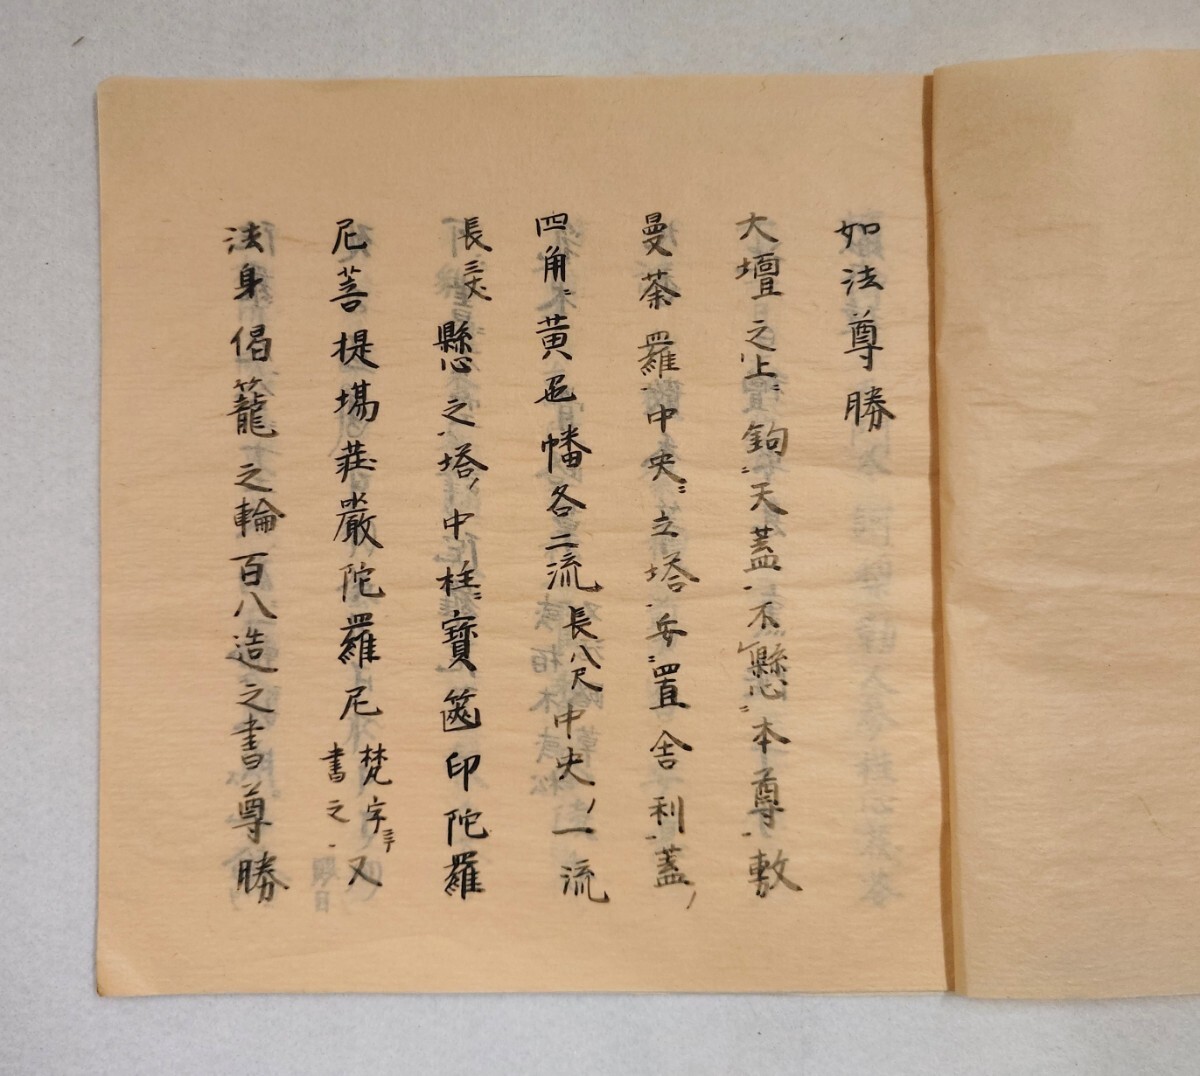 如法尊勝
大壇之上ニ鉤ニ天蓋ー不懸ニ本尊ー敷
曼荼羅ー中央ニ立塔ー安ニ置舎利ー蓋ノ
四角ニ黄色幡各二流長八尺中央ノ一流
長三丈懸之塔ノ中柱ニ寶篋印陀羅
尼菩提場荘嚴陀羅尼梵字ニテ書之ー又
法身偈籠之輪百八造之書尊勝